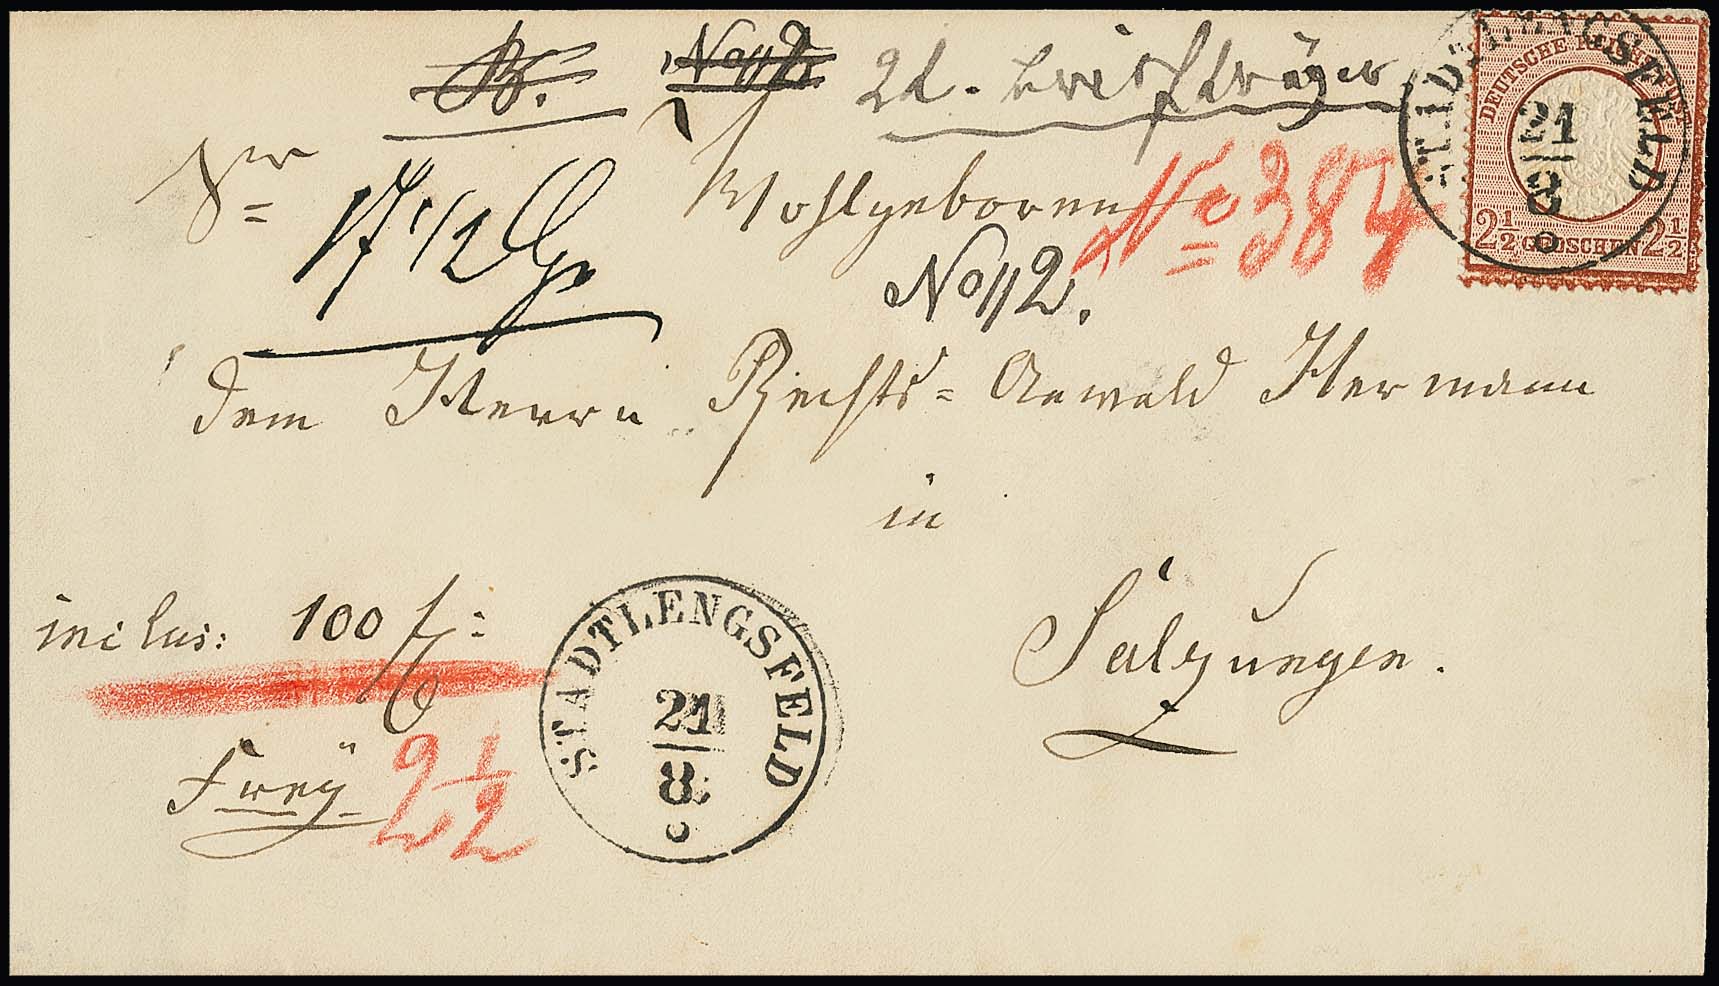 No 112
2d. Briefträger
Sr
Wohlgeboren
17 1/2 Gr
No 384
No 112.
dem Herrn Rechts= Anwald Hermann
in
Salzungen.
inclus: 100 f:
Frey
2 1/2
STADTLENGSFELD
21
8
STADTLENGSFELD
21
8
DEUTSCHE REICHS-POST
2½ GROSCHEN 2½